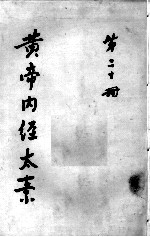 第二十册
黄帝内經太素